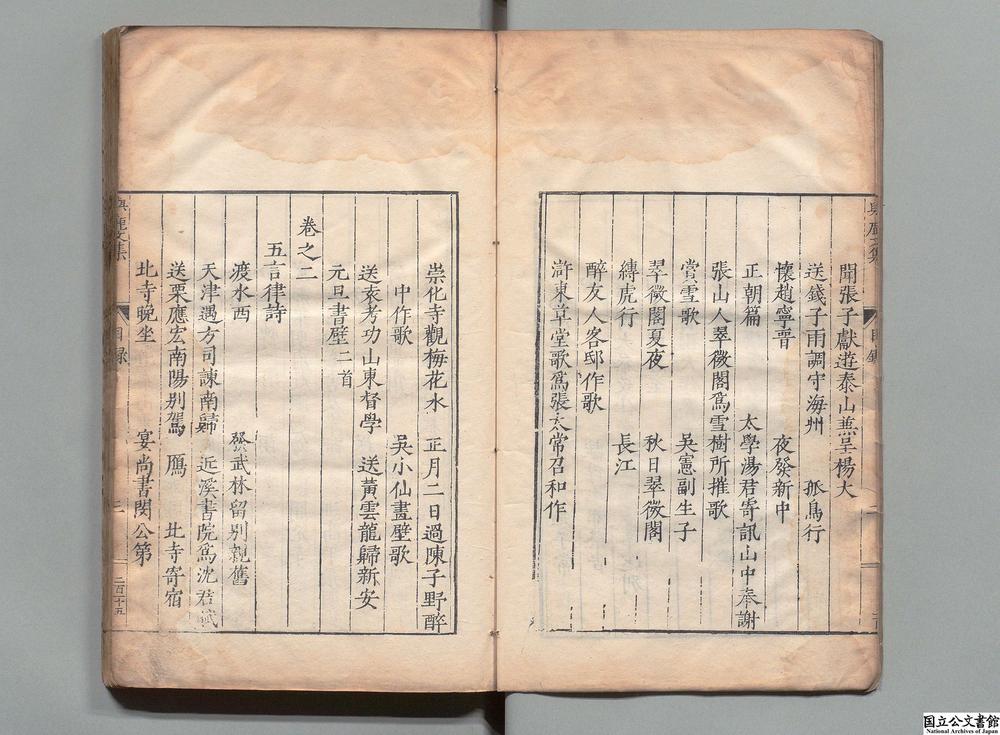 聞張子獻遊泰山兼呈楊大
送錢子雨調守海州　孤鳥行
懷趙寧晉　夜發新中
正朝篇　太學湯君寄訊山中奉謝
張山人翠微閣爲雪樹所摧歌
嘗雪歌　吳憲副生子
翠微閣夏夜　秋日翠微閣
縛虎行　長江
醉友人客邸作歌
滸東草堂歌爲張太常召和作
崇化寺觀梅花水　正月二日過陳子野醉
中作歌　吳小仙畫壁歌
送袁考功山東督學　送黃雲龍歸新安
元旦書壁二首
卷之二
五言律詩
渡水西　發武林留別親舊
天津遇方司諫南歸　近溪書院爲沈君賦
送栗應宏南陽別駕　鴈　北寺寄宿
北寺晚坐　宴尚書閔公第
文集　目錄　三
国立公文書館
National Archives of Japan